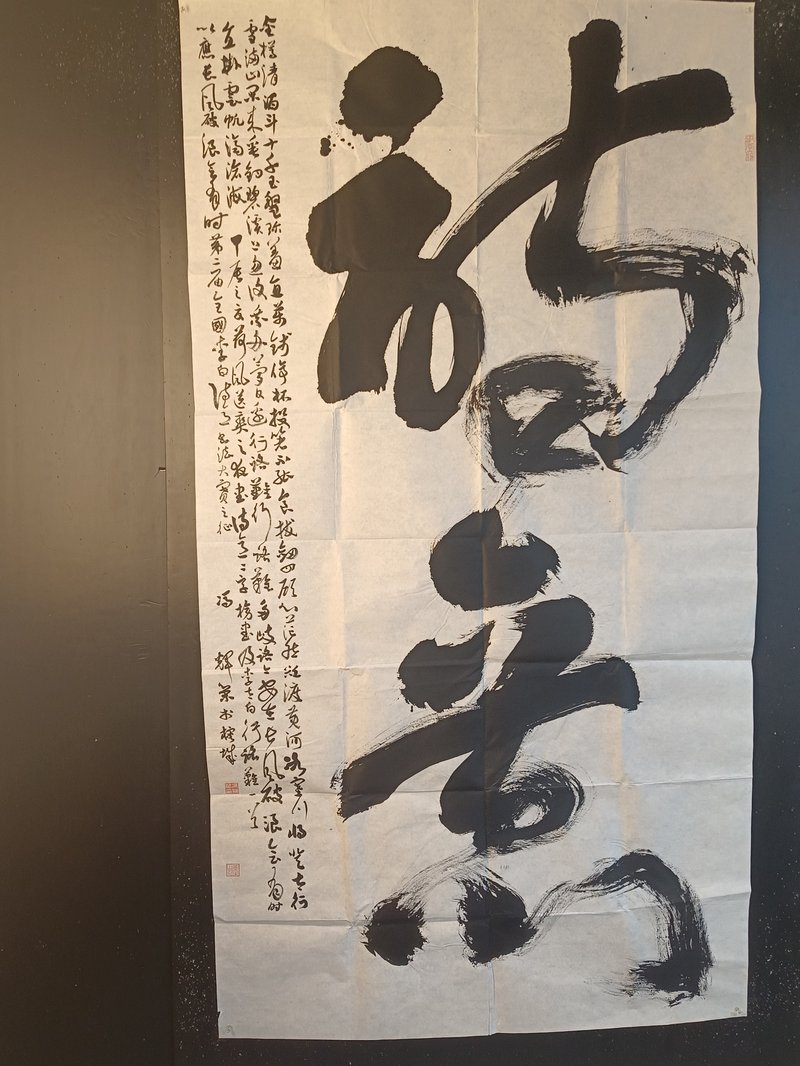 詩意
金樽清酒斗十千玉盤珍羞直萬錢停杯投箸不能食拔劍四顧心茫然欲渡黃河冰塞川將登太行
雪滿山閑來垂釣碧溪上忽復乘舟夢日邊行路難行路難多歧路今安在長風破浪會有時
直掛雲帆濟滄海 甲辰之夏荷風送爽之夜書詩意二字榜書及李太白行路難一首
以應長風破浪會有時第二届全國李白詩意書法大賽之征 馮輝榮書